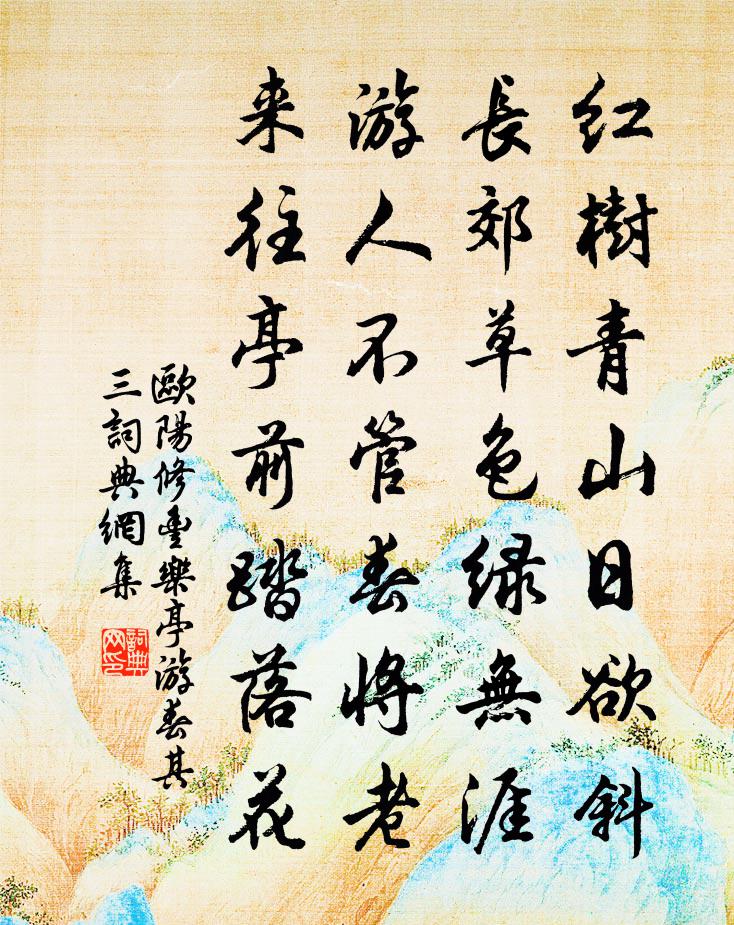 红樹青山日欲斜
長郊草色緑無涯
游人不管春將老
来往亭前踏落花
歐陽修豊樂亭游春其
三詞典網集
詞典
网印